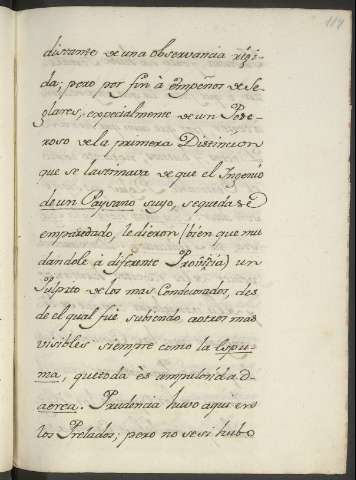 114
distante de una observancia rigi-
da; pero por fin à empeños de Se-
glares, especialmente de un Pode-
roso de la primera Distincion
que se lastimava de que el Ingenio
de un Paysano suyo, se quedase
emparedado, le dieron (bien que mu
dandole à diferente Proviñzia) un
Pulpito de los mas Condecorados, des
de el qual fué subiendo aotros mas
visibles siempre como la espu-
ma, que toda ès
aerea. Prudencia huvo aqui en
los Prelados; pero no se si hubo